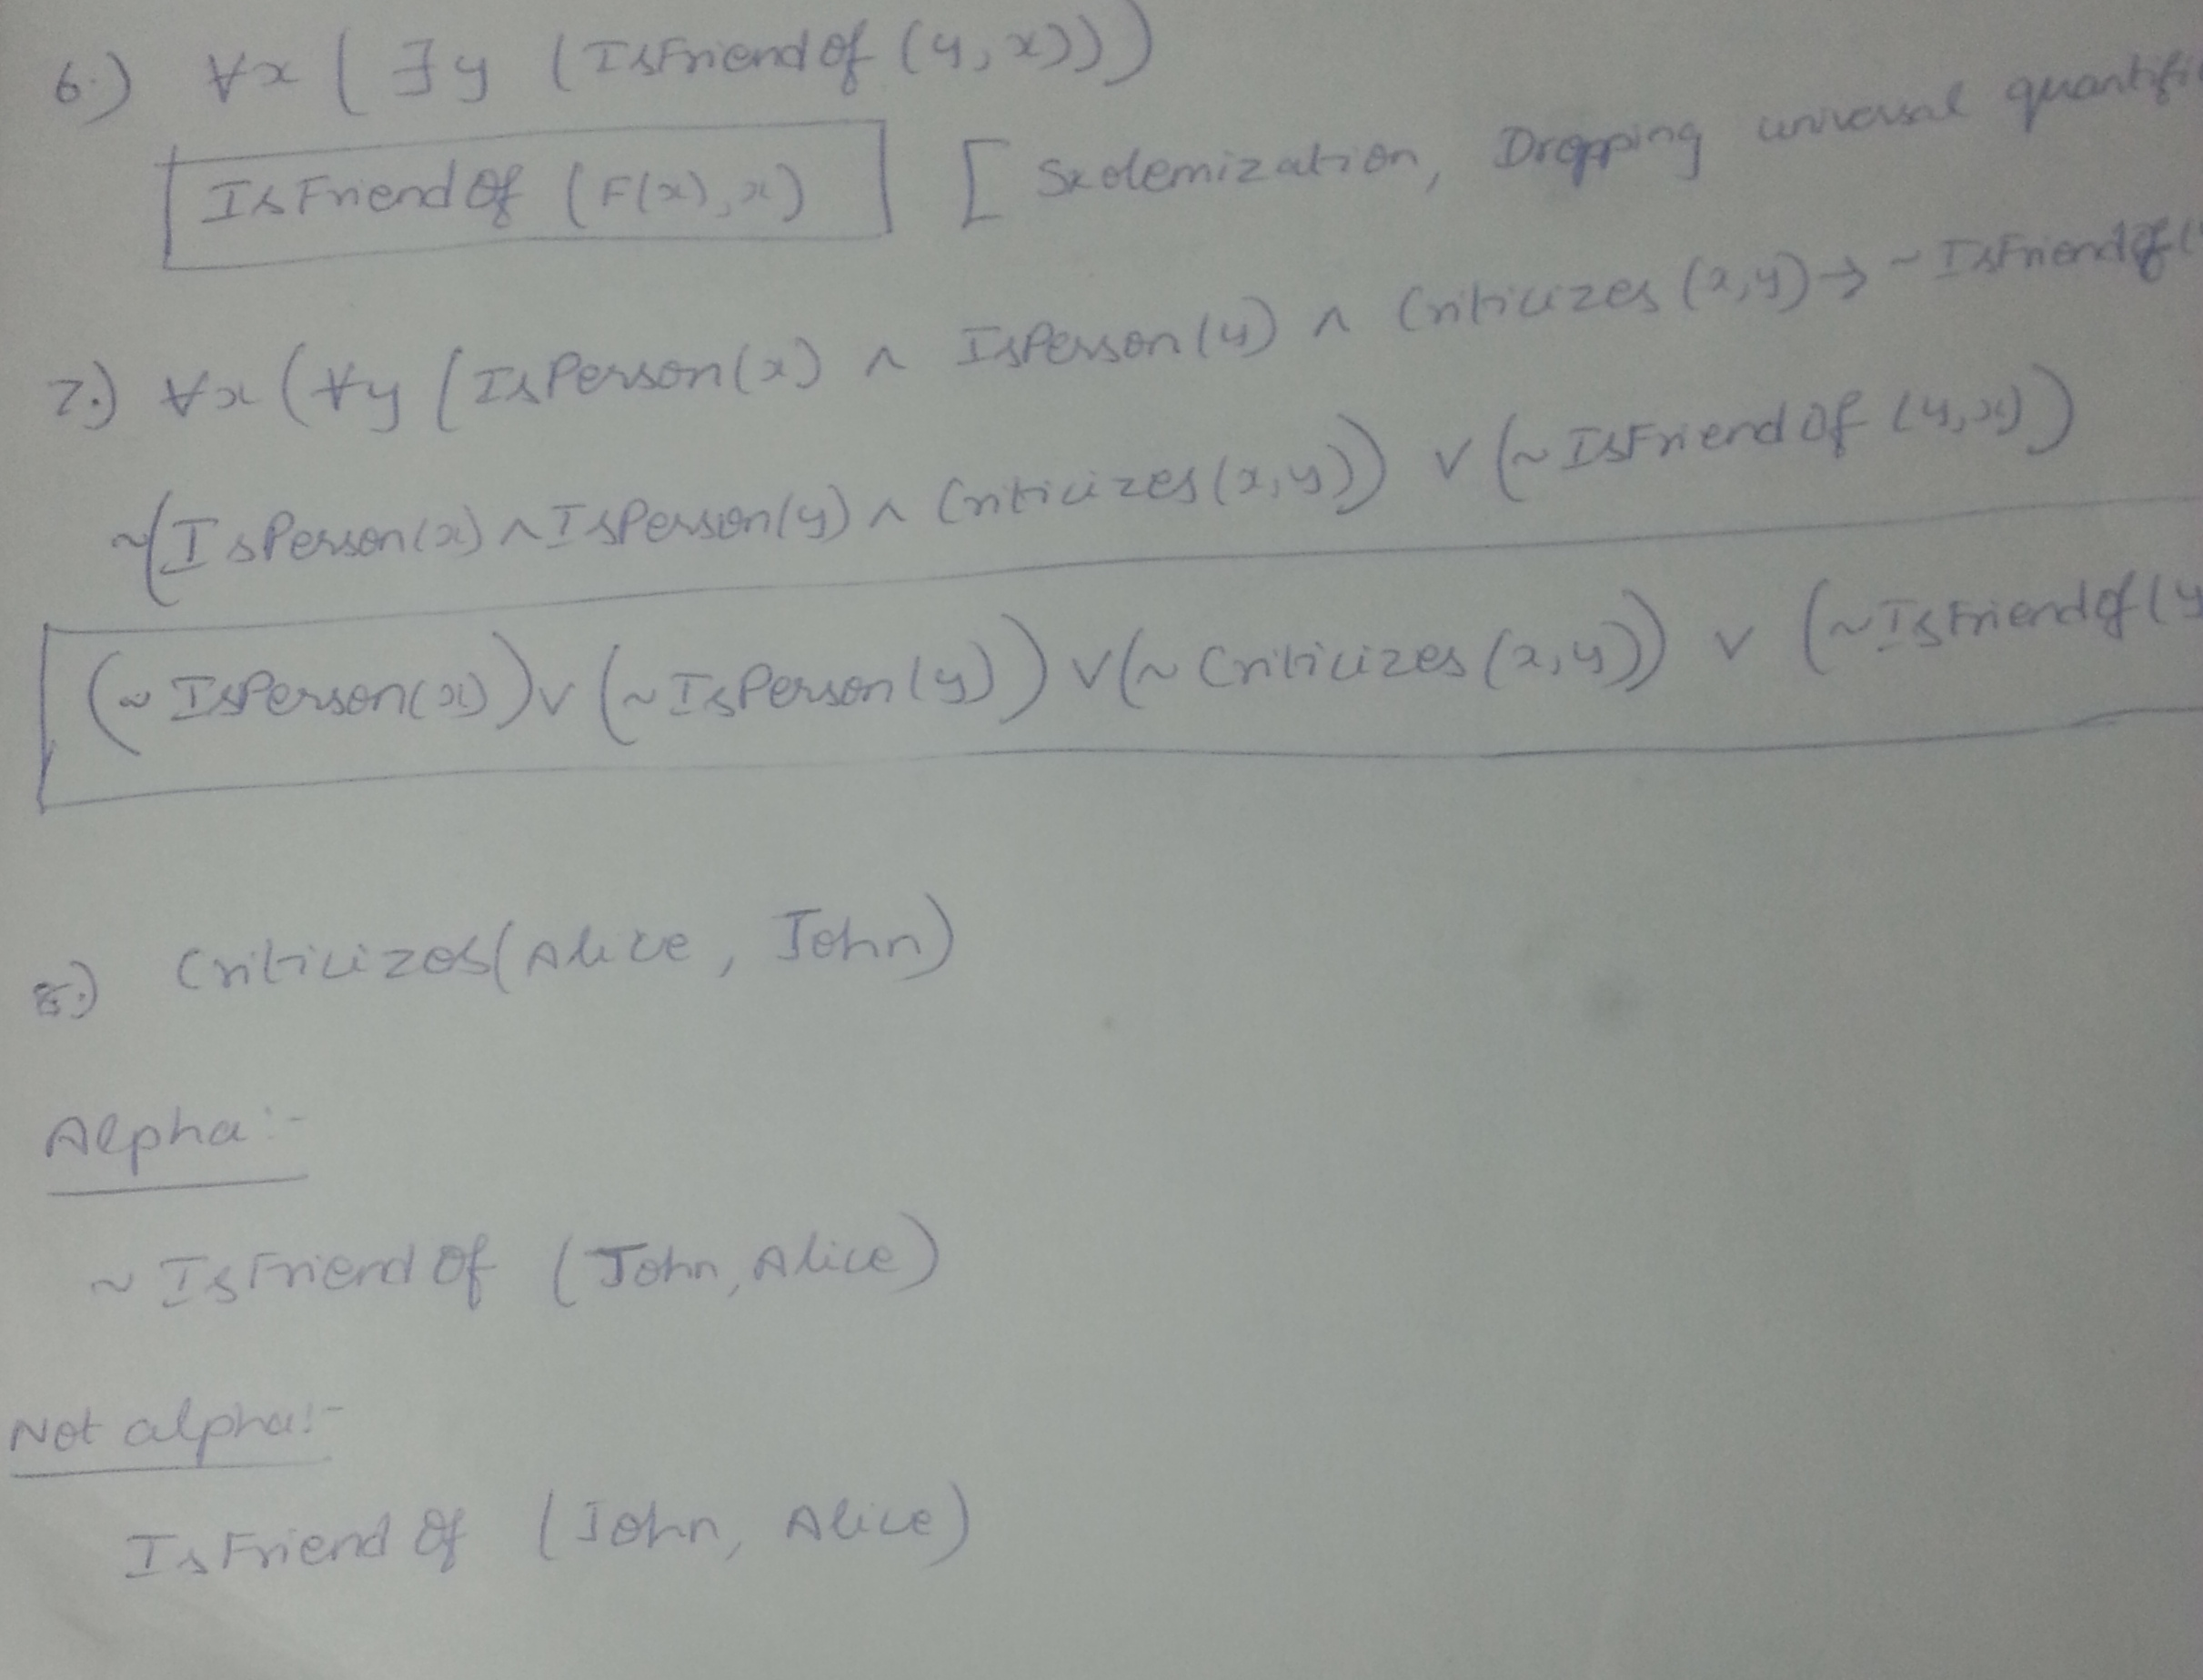 6.) ∀x ( ∃y (IsFriendOf (y, x)))
IsFriendOf (F(x), x) [ Skolemization, Dropping universal
7.) ∀x (∀y (IsPerson(x) ∧ IsPerson(y) ∧ Criticizes (x,y) → ~IsFriendOf(
~(IsPerson(x) ∧ IsPerson(y) ∧ Criticizes(x,y)) ∨ (~IsFriendOf (y,x))
(~IsPerson(x)) ∨ (~IsPerson(y)) ∨ (~Criticizes(x,y)) ∨ (~IsFriendOf(y
8.) Criticizes(Alice, John)
Alpha:-
~IsFriendOf (John, Alice)
Not alpha:-
IsFriendOf (John, Alice)